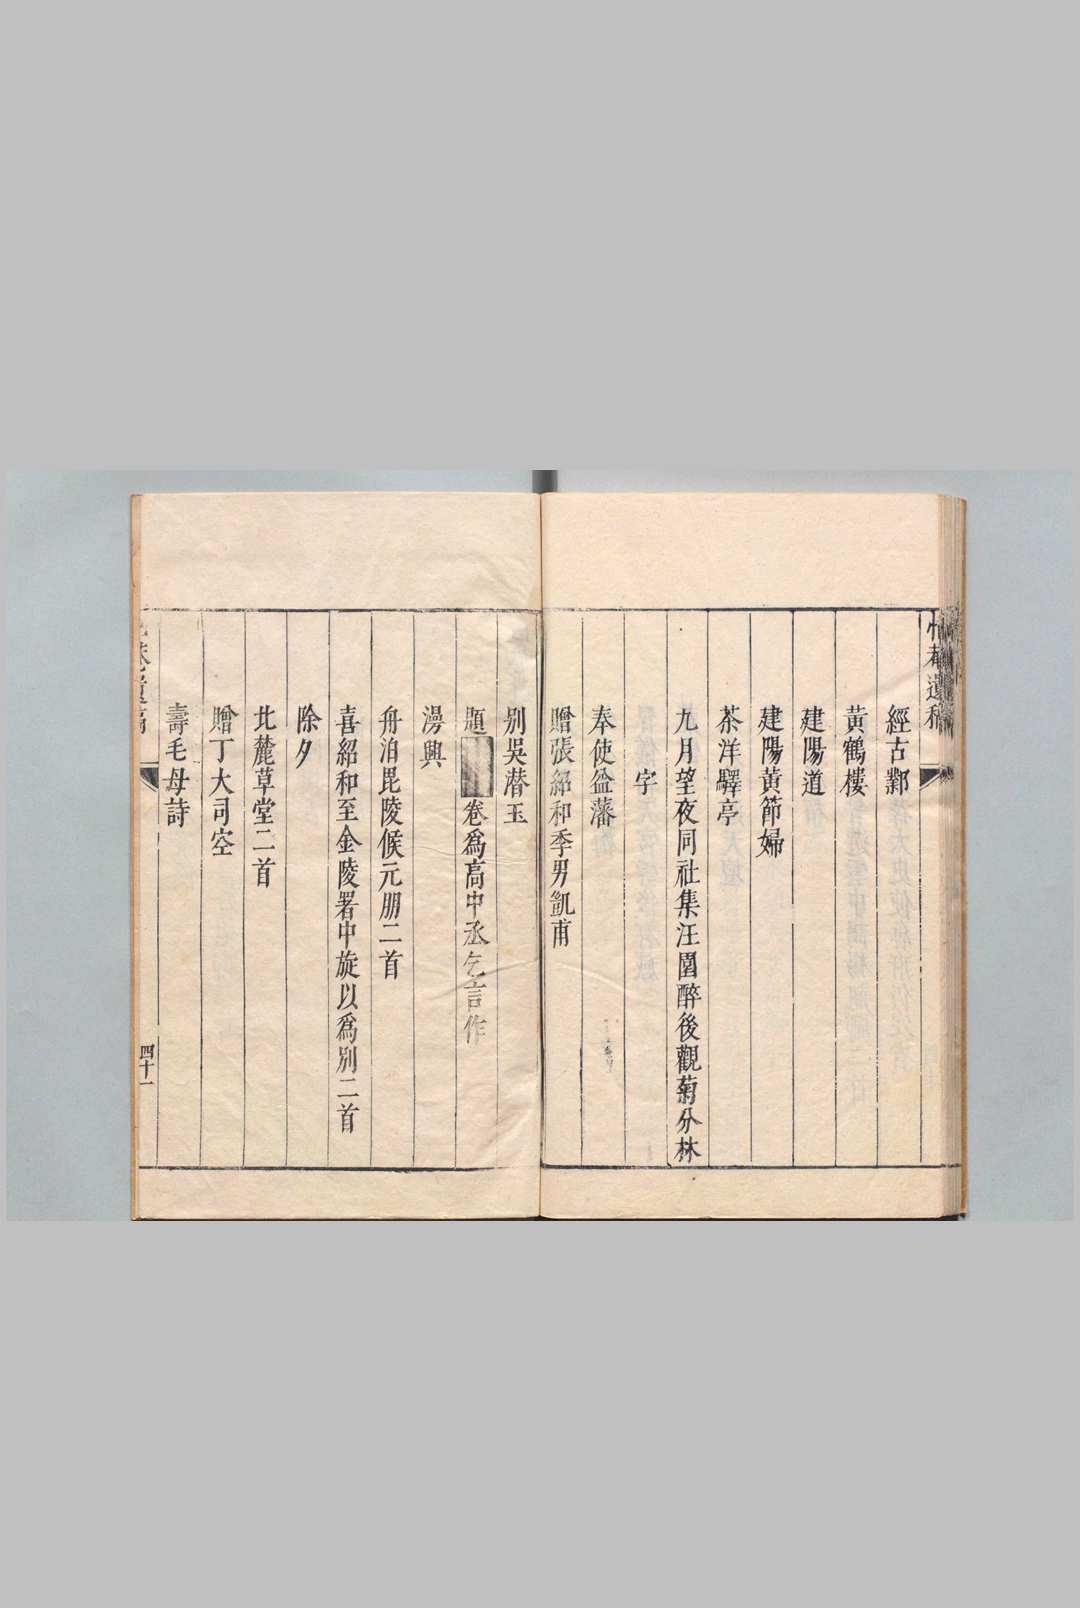 經古鄴
黃鶴樓
建陽道
建陽黃節婦
茶洋驛亭
九月望夜同社集汪園醉後觀菊分林
字
奉使益藩
贈張紹和季男凱甫
別吳潛玉
題卷爲高中丞乞言作
漫興
舟泊毘陵候元朋二首
喜紹和至金陵署中旋以爲別二首
除夕
北麓草堂二首
贈丁大司空
壽毛母詩
四十一